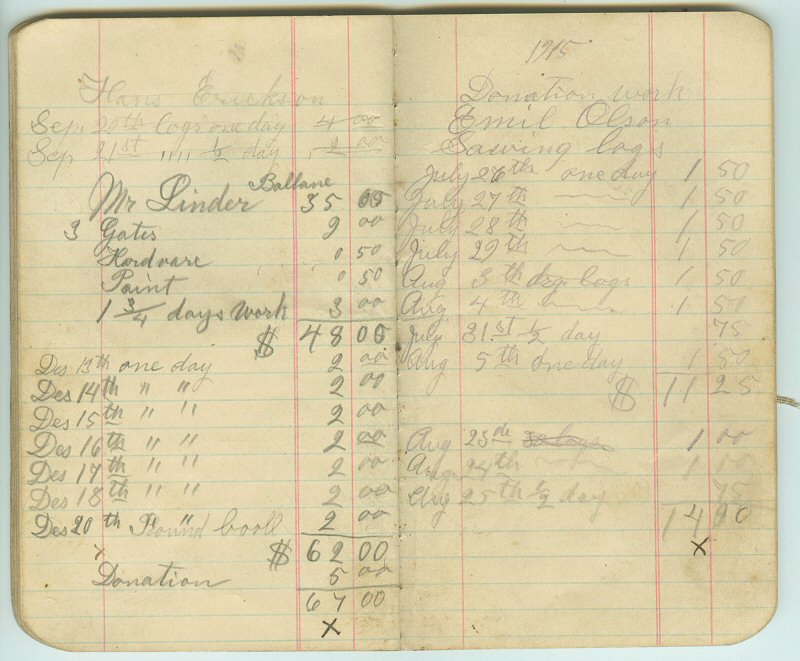 Hans Erickson
Sep. 20th logs one day 4 00
Sep 21st "" 1/2 day, 2 00
Ballane
Mr Linder 35 00
3 Gates 9 00
Hardvare 0 50
Paint 0 50
1 3/4 days work 3 00
$ 48 00
Des 13th one day 2 00
Des 14th " " 2 00
Des 15th " " 2 00
Des 16th " " 2 00
Des 17th " " 2 00
Des 18th " " 2 00
Des 20th 2 00
x $ 62 00
Donation 5 00
67 00
x
1915
Donation work
Emil Olson
Sawing logs
July 26th one day 1 50
July 27th 1 50
July 28th 1 50
July 29th 1 50
Aug 3th drg. logs 1 50
Aug 4th 1 50
July 31st 1/2 day 75
Aug 5th one day 1 50
$ 11 25
Aug 23de 1 00
Aug 24th 1 00
Aug 25th 1/2 day 75
14
x